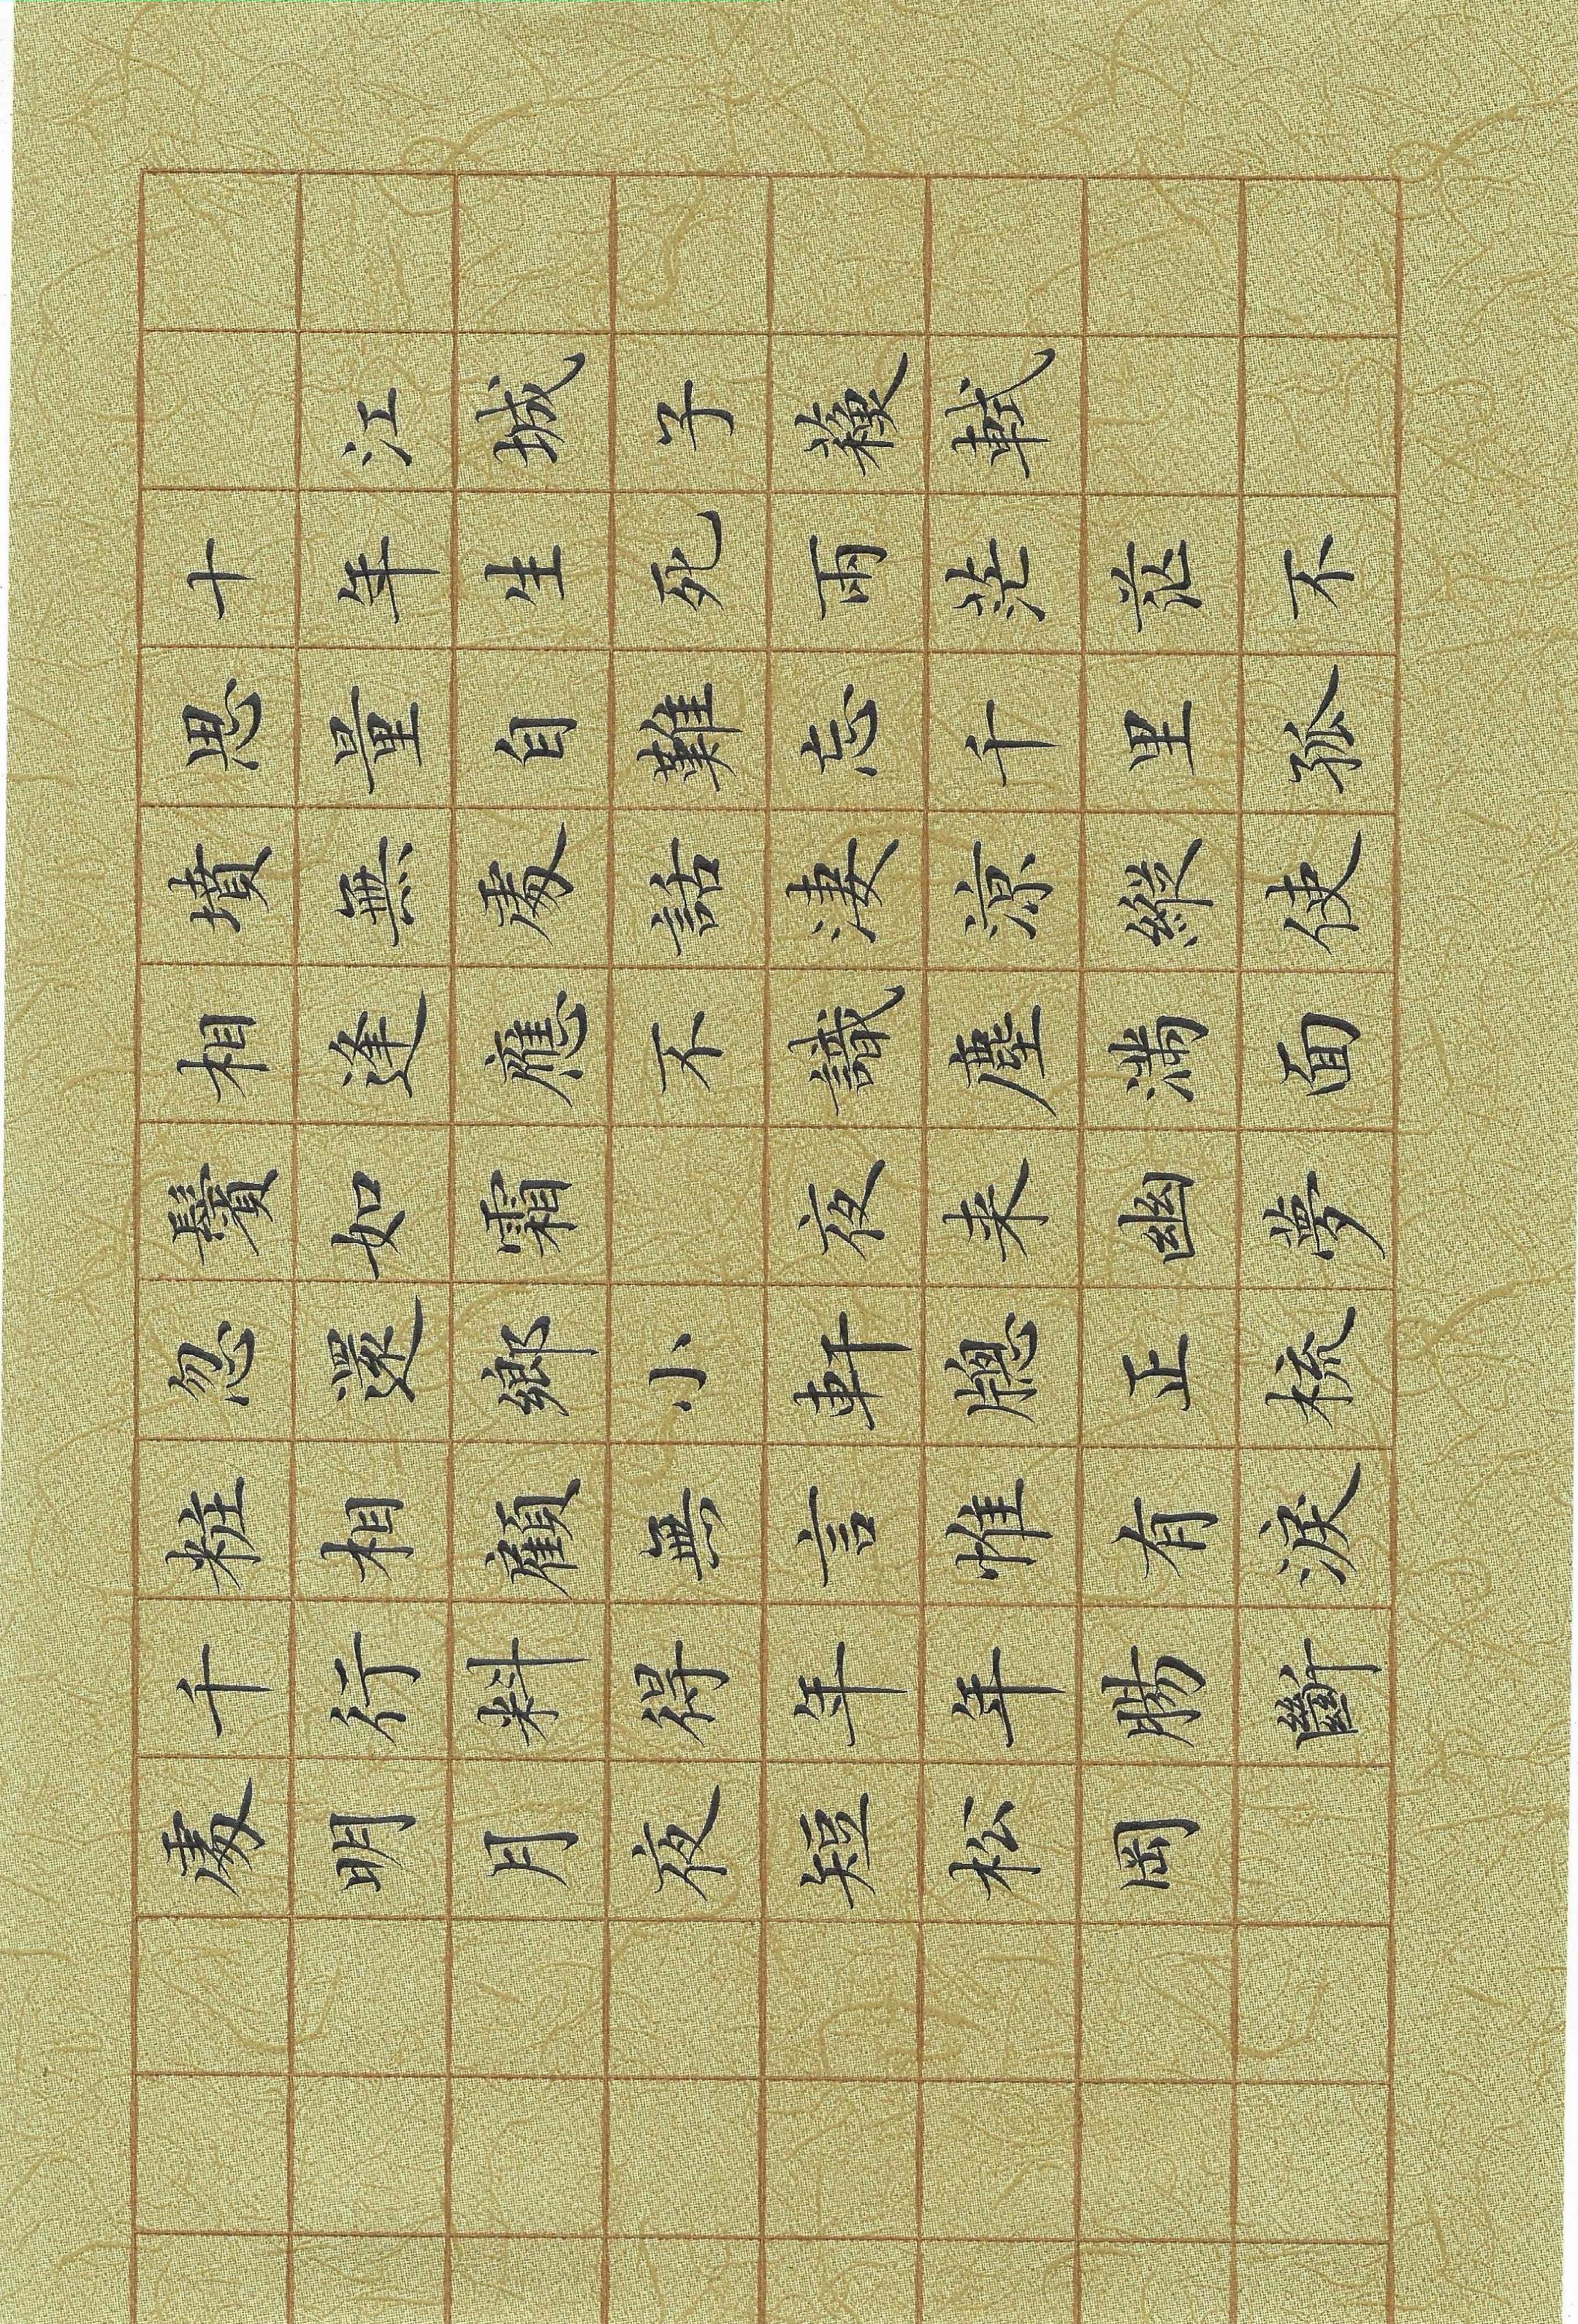 江城子蘓軾
十年生死兩茫茫不
思量自難忘千里孤
墳無處話淒涼縱使
相逢應不識塵滿面
鬢如霜 夜来幽夢
忽還鄉小軒牕正梳
粧相顧無言惟有淚
千行料得年年腸斷
處明月夜短松岡